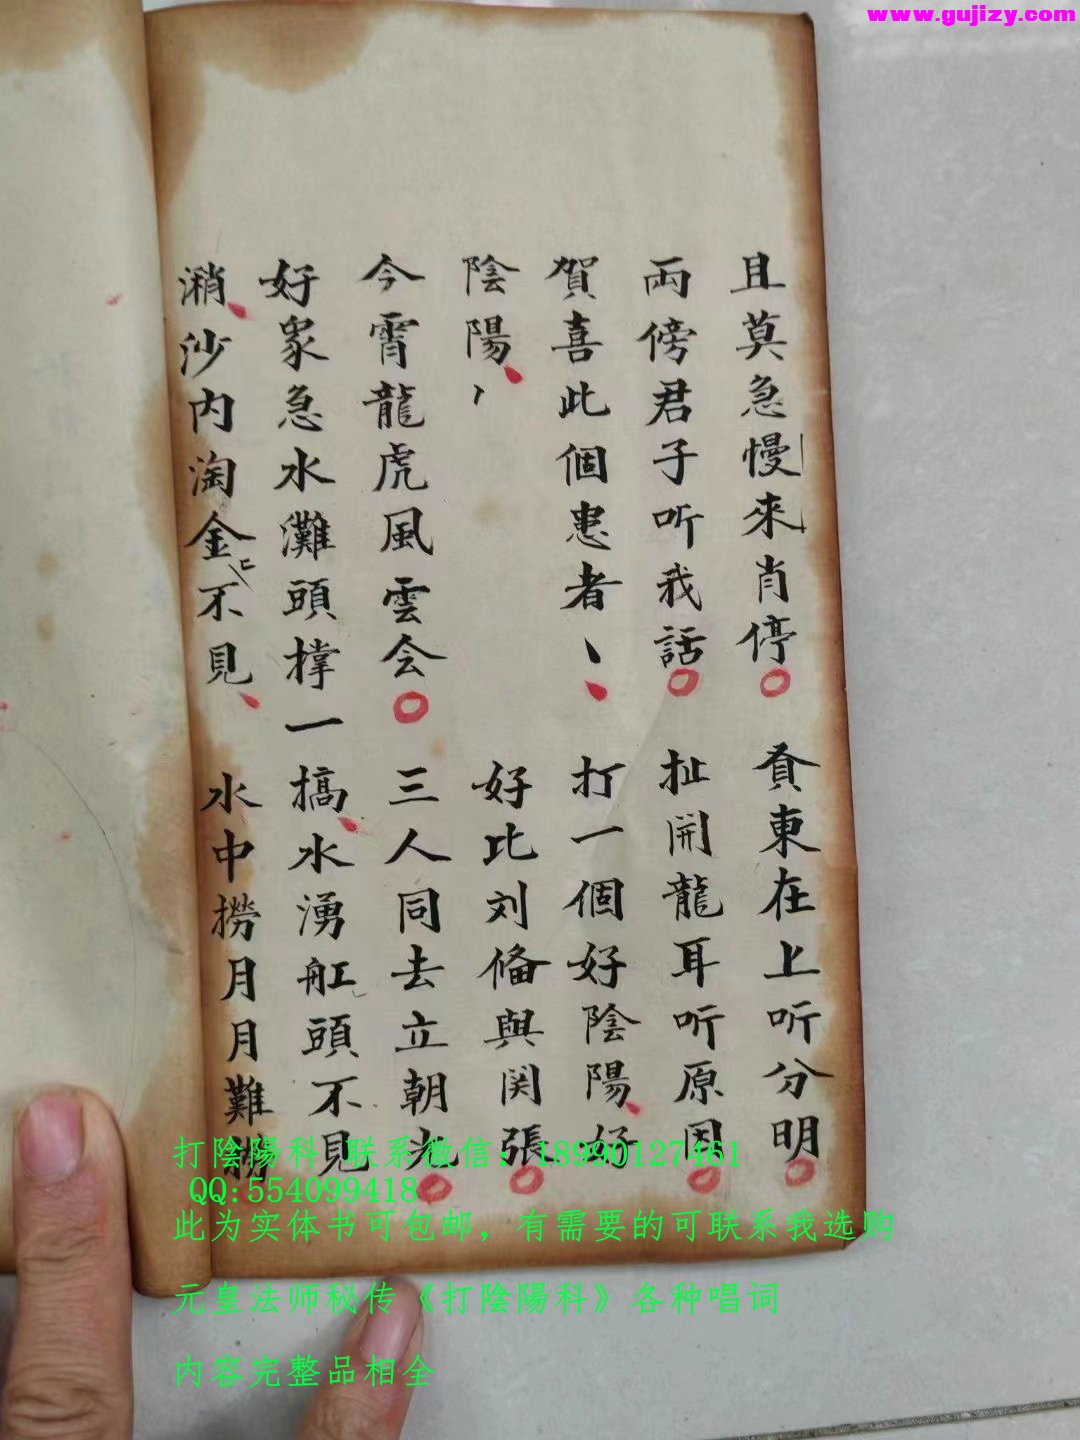 www.gujizy.com
且莫急慢來肖停 貟東在上听分明
両傍君子听我話 扯開龍耳听原因
賀喜此個患者、 打一個好陰陽好
陰陽、 好比刘偹與関張
今霄龍虎風雲会 三人同去立朝光
好象急水灘頭撑一搞水湧舡頭不見
潲沙内淘金匕不見 水中撈月月難撈
打陰陽科 联系微信：18990127461
QQ:554099418
此为实体书可包邮，有需要的可联系我选购
元皇法师秘传《打陰陽科》各种唱词
内容完整品相全